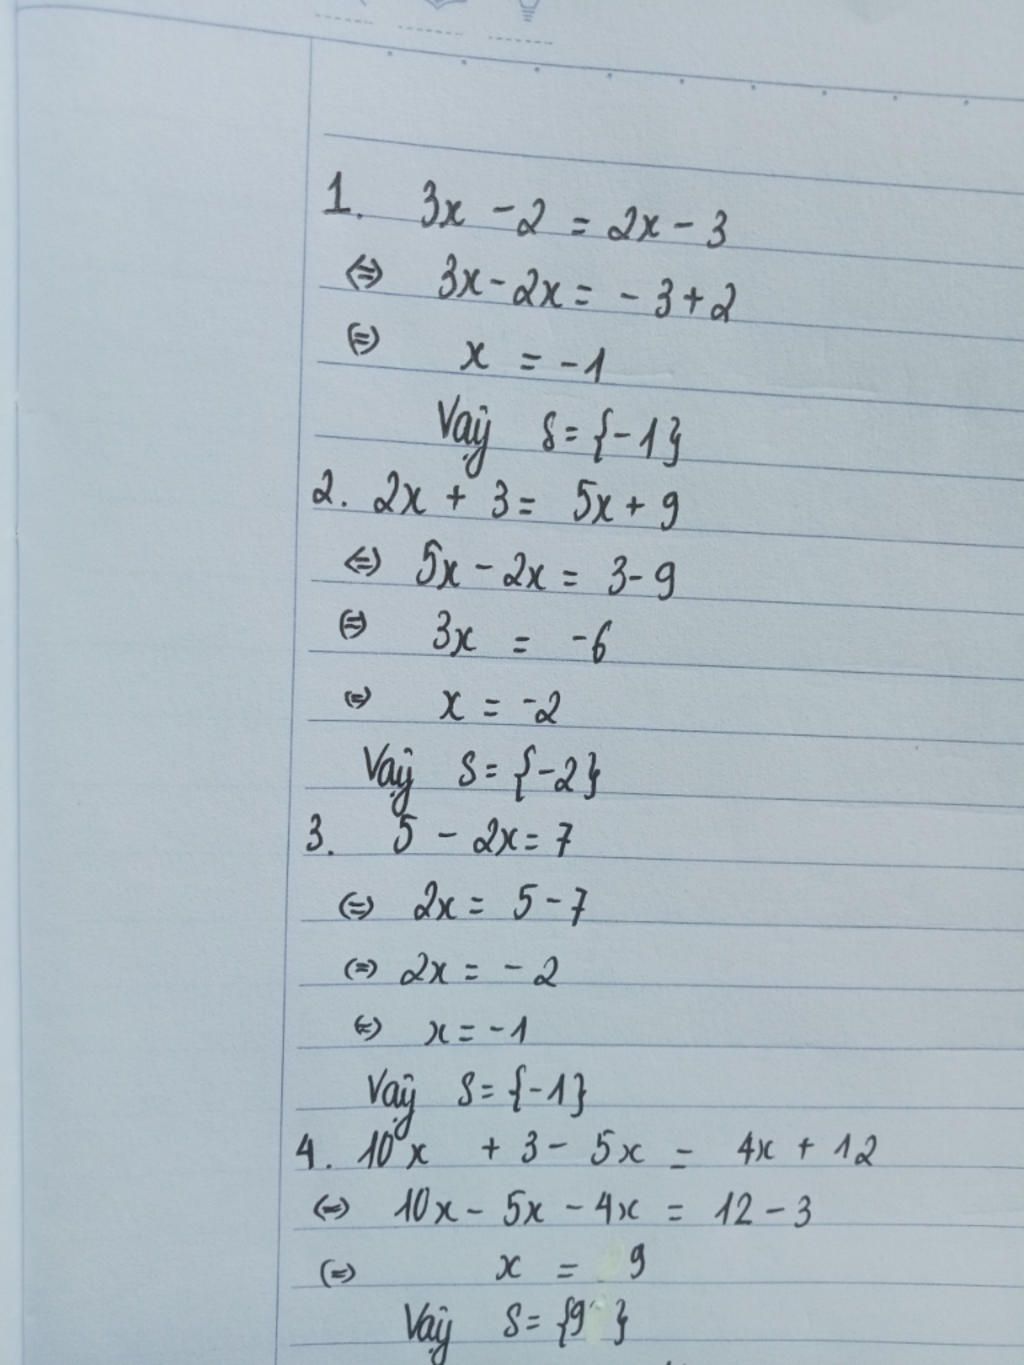 1. 3x - 2 = 2x - 3
⇔ 3x - 2x = - 3 + 2
⇔ x = -1
Vậy S = {-1}
2. 2x + 3 = 5x + 9
⇔ 5x - 2x = 3 - 9
⇔ 3x = -6
⇔ x = -2
Vậy S = {-2}
3. 5 - 2x = 7
⇔ 2x = 5 - 7
⇔ 2x = - 2
⇔ x = -1
Vậy S = {-1}
4. 10x + 3 - 5x = 4x + 12
⇔ 10x - 5x - 4x = 12 - 3
⇔ x = 9
Vậy S = {9}